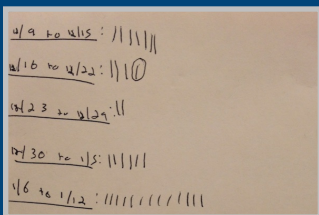 12/9 to 12/15: |||||||
12/16 to 12/22: ||||
12/23 to 12/29: ||
12/30 to 1/5: ||||||
1/6 to 1/12: |||||||||||||